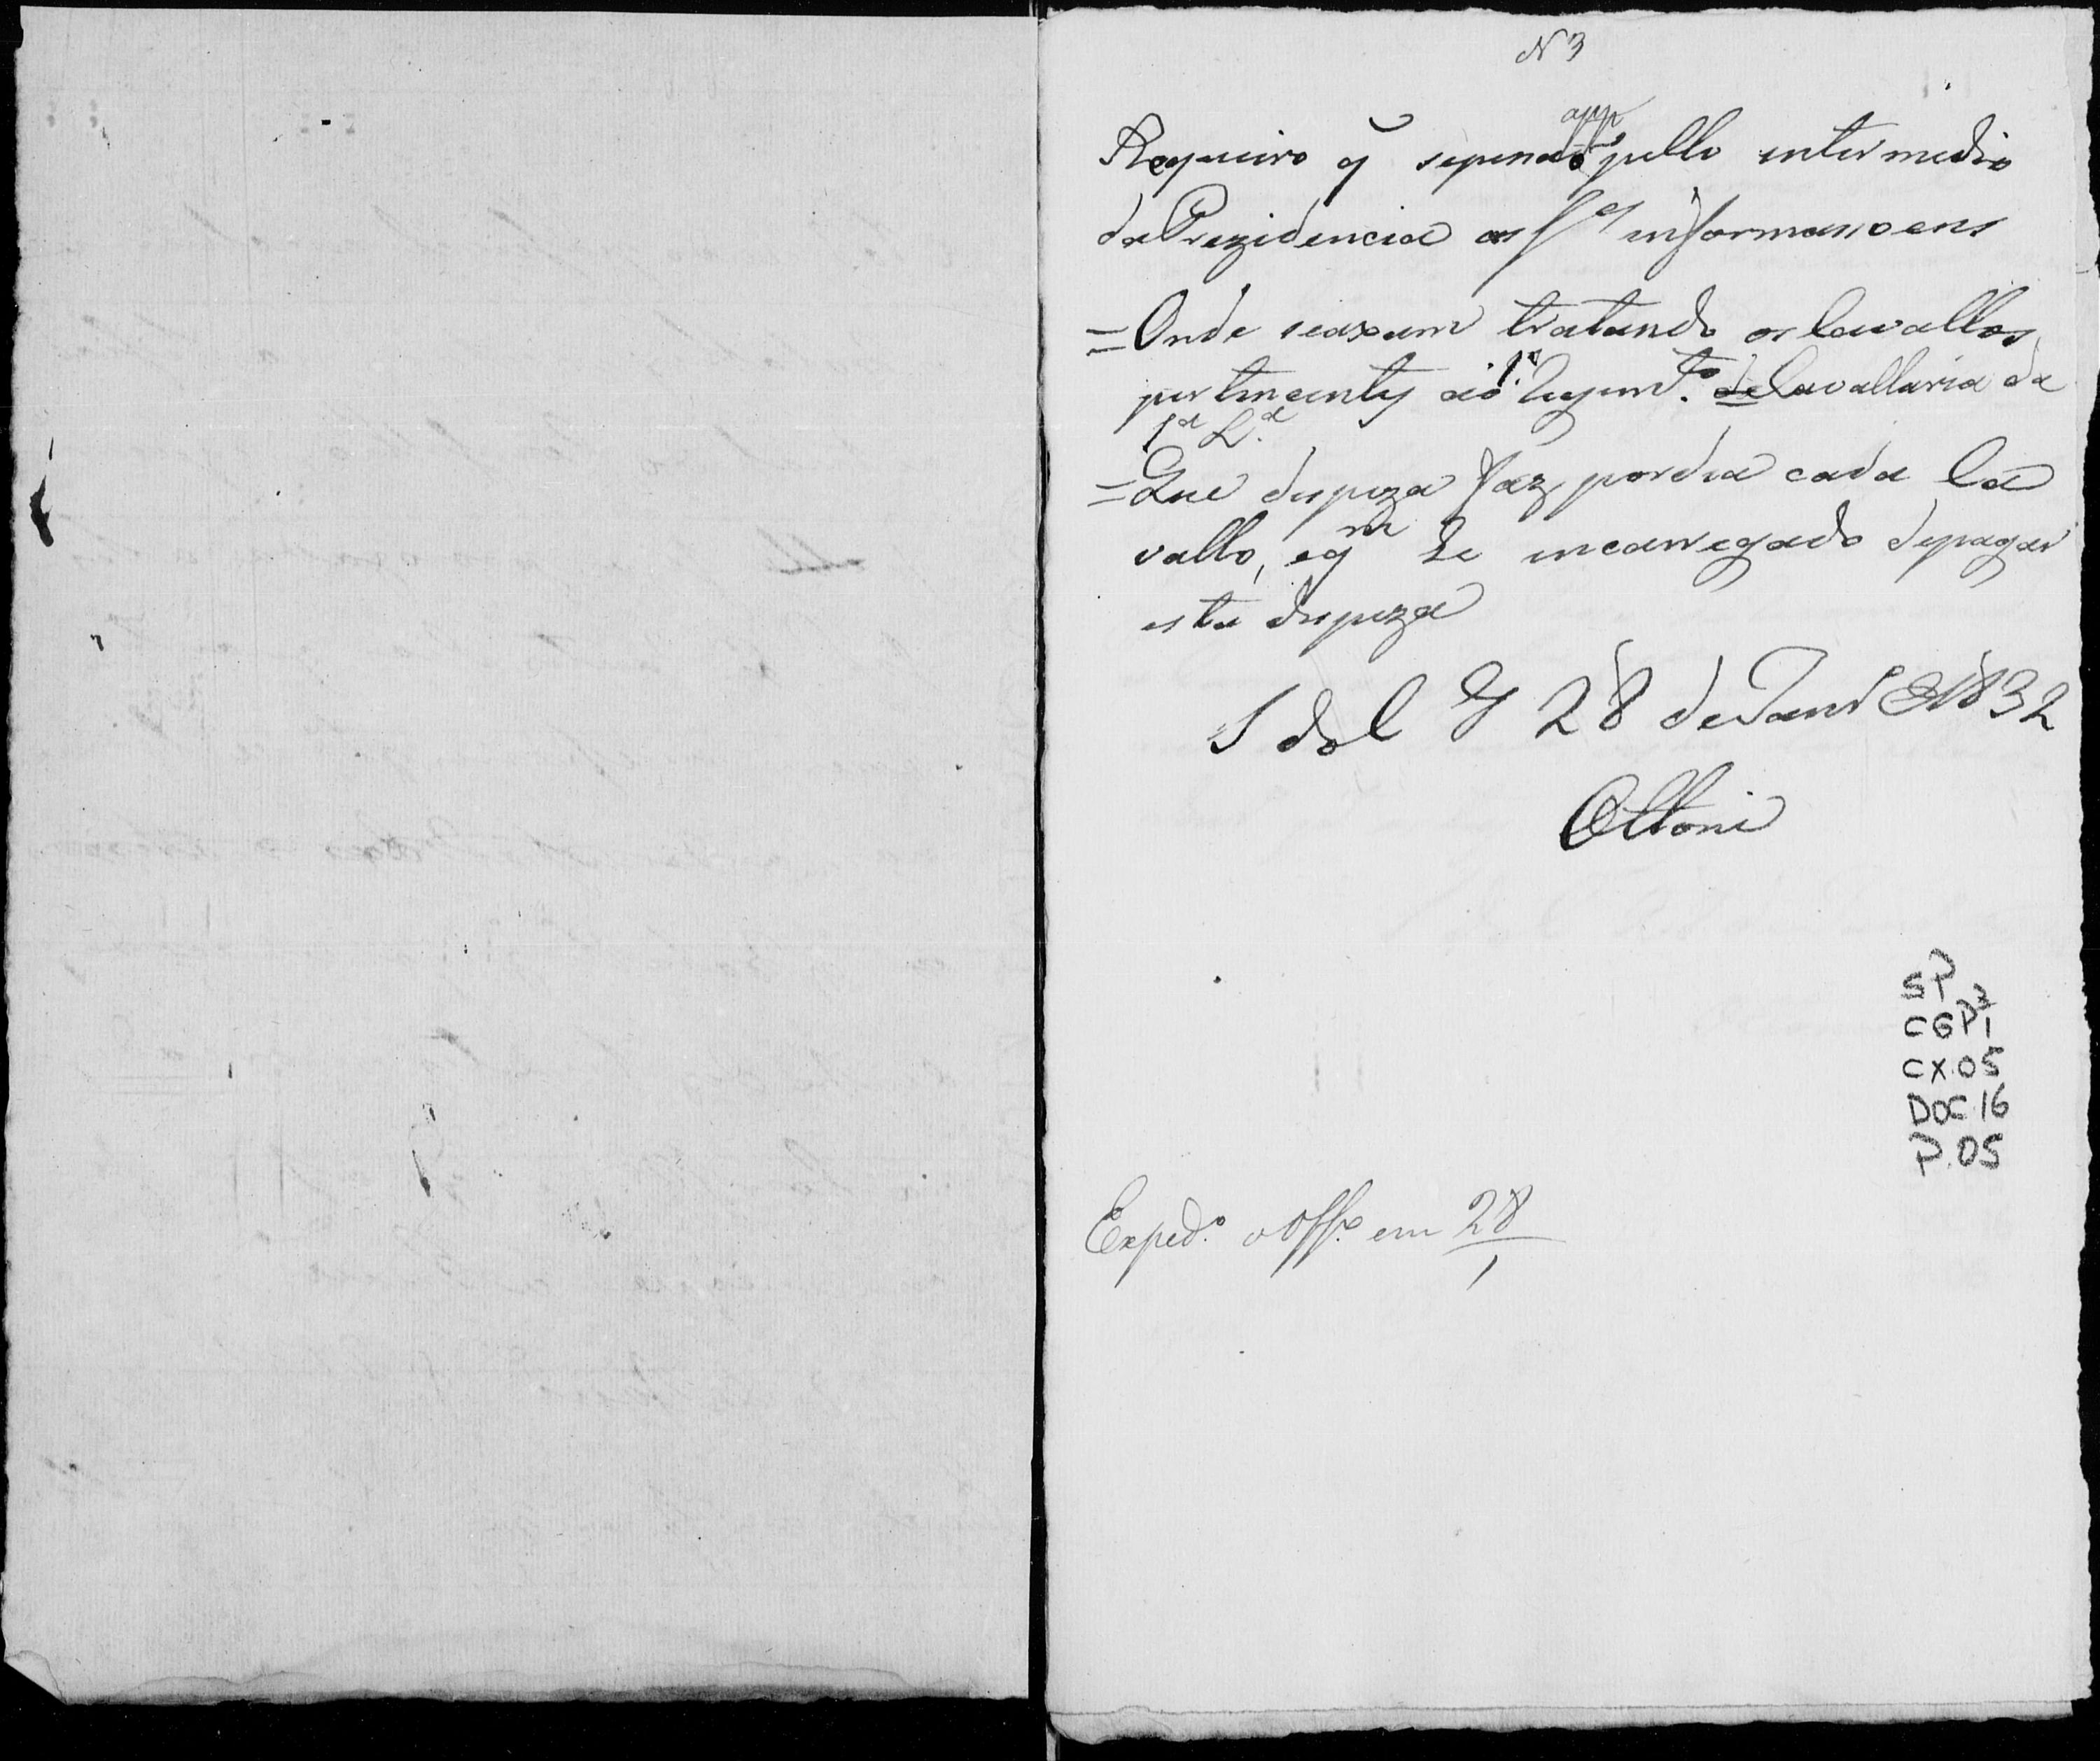 N 3
app
Requeiro q̃ sepessão pello intermedio
da Prezidencia as sg.es informasoens
= Onde seaxam tratando os Cavallos
pertencentes ao 1.º Regim.to de Cavallaria da
1.ª L.ª
= Que despeza faz pordia cada Ca
vallo, eq.m he encarregado depagar
esta despeza
S do C G 28 de Janr.º 1832
Ottoni
SP
CGP1
CX.05
DOC.16
P.05
Exped.º o Off.º em 28
1